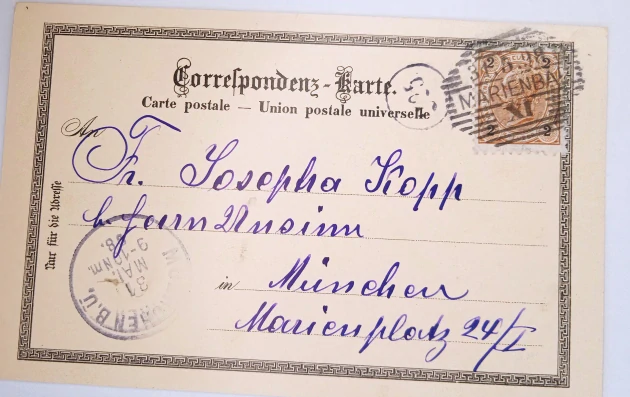 Correspondenz-Karte.
Carte postale — Union postale universelle
2 2
MARIENBA
XI
2 2
An
Fr. Josepha Kopp
b. Herrn
in München
Marienplatz 24/I
Nur für die Adresse
MÜNCHEN B.Ü.
31
MAI
9-10 Nm.
98.